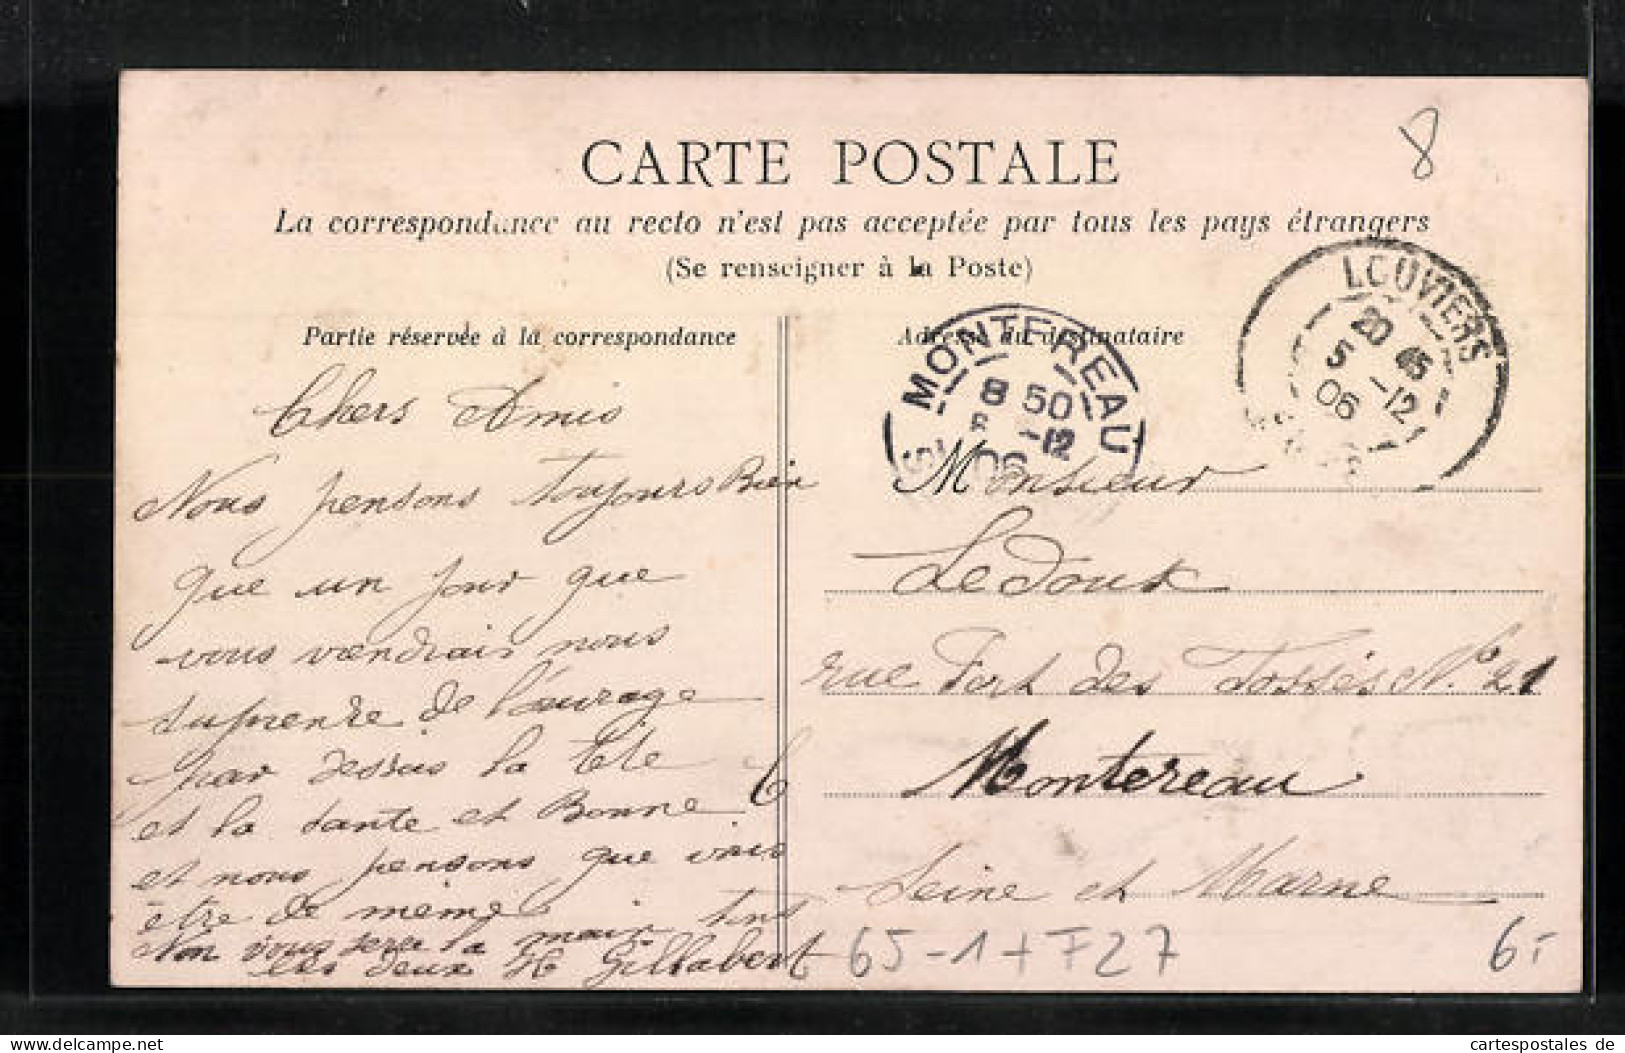 8
CARTE POSTALE
La correspondance au recto n'est pas acceptée par tous les pays étrangers
(Se renseigner à la Poste)
Partie réservée à la correspondance
Chers Amis
Nous pensons toujours Bien
que un jour que
vous vaendrais nous
suprenre de l'ourage
par dessus la tête
et la sante et Bonne
et nous pensons que vous
être de même
on vous sere la main tous
les deux H Gillabert
Adresse du destinataire
MONTEREAU
8 50
-12
06
LOUVIERS
20 45
5 -12
06
Monsieur
Ledoux
rue Fort des Fossés N° 21
Montereau
Seine et Marne
65-1+F27
6.-
cartespostales de